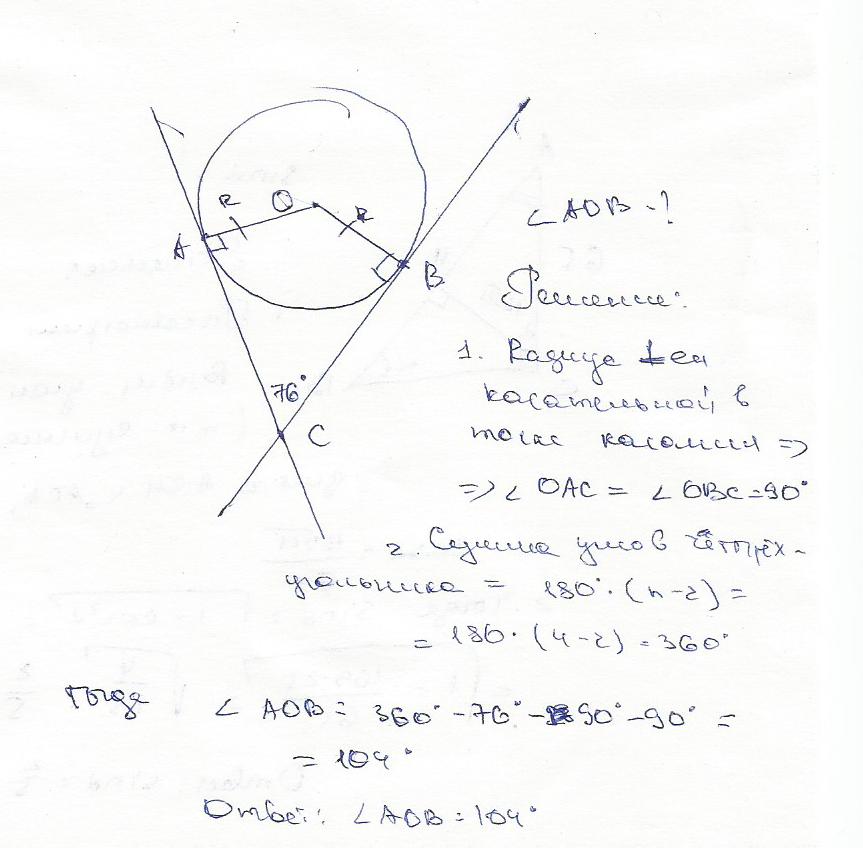 R
O
R
A
B
76°
C
∠AOB - ?
Решение:
1. Радиус ⊥ен
касательной в
точке касания =>
=> ∠ OAC = ∠ OBC = 90°
2. Сумма углов четырёх-
угольника = 180° · (n-2) =
= 180 · (4-2) = 360°
Тогда ∠ AOB = 360° - 76° - 90° - 90° =
= 104°
Ответ: ∠AOB = 104°